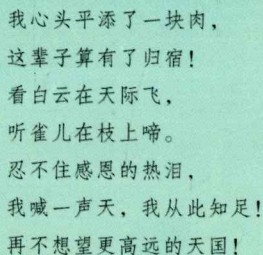 我心头平添了一块肉，
这辈子算有了归宿！
看白云在天际飞，
听雀儿在枝上啼。
忍不住感恩的热泪，
我喊一声天，我从此知足！
再不想望更高远的天国！